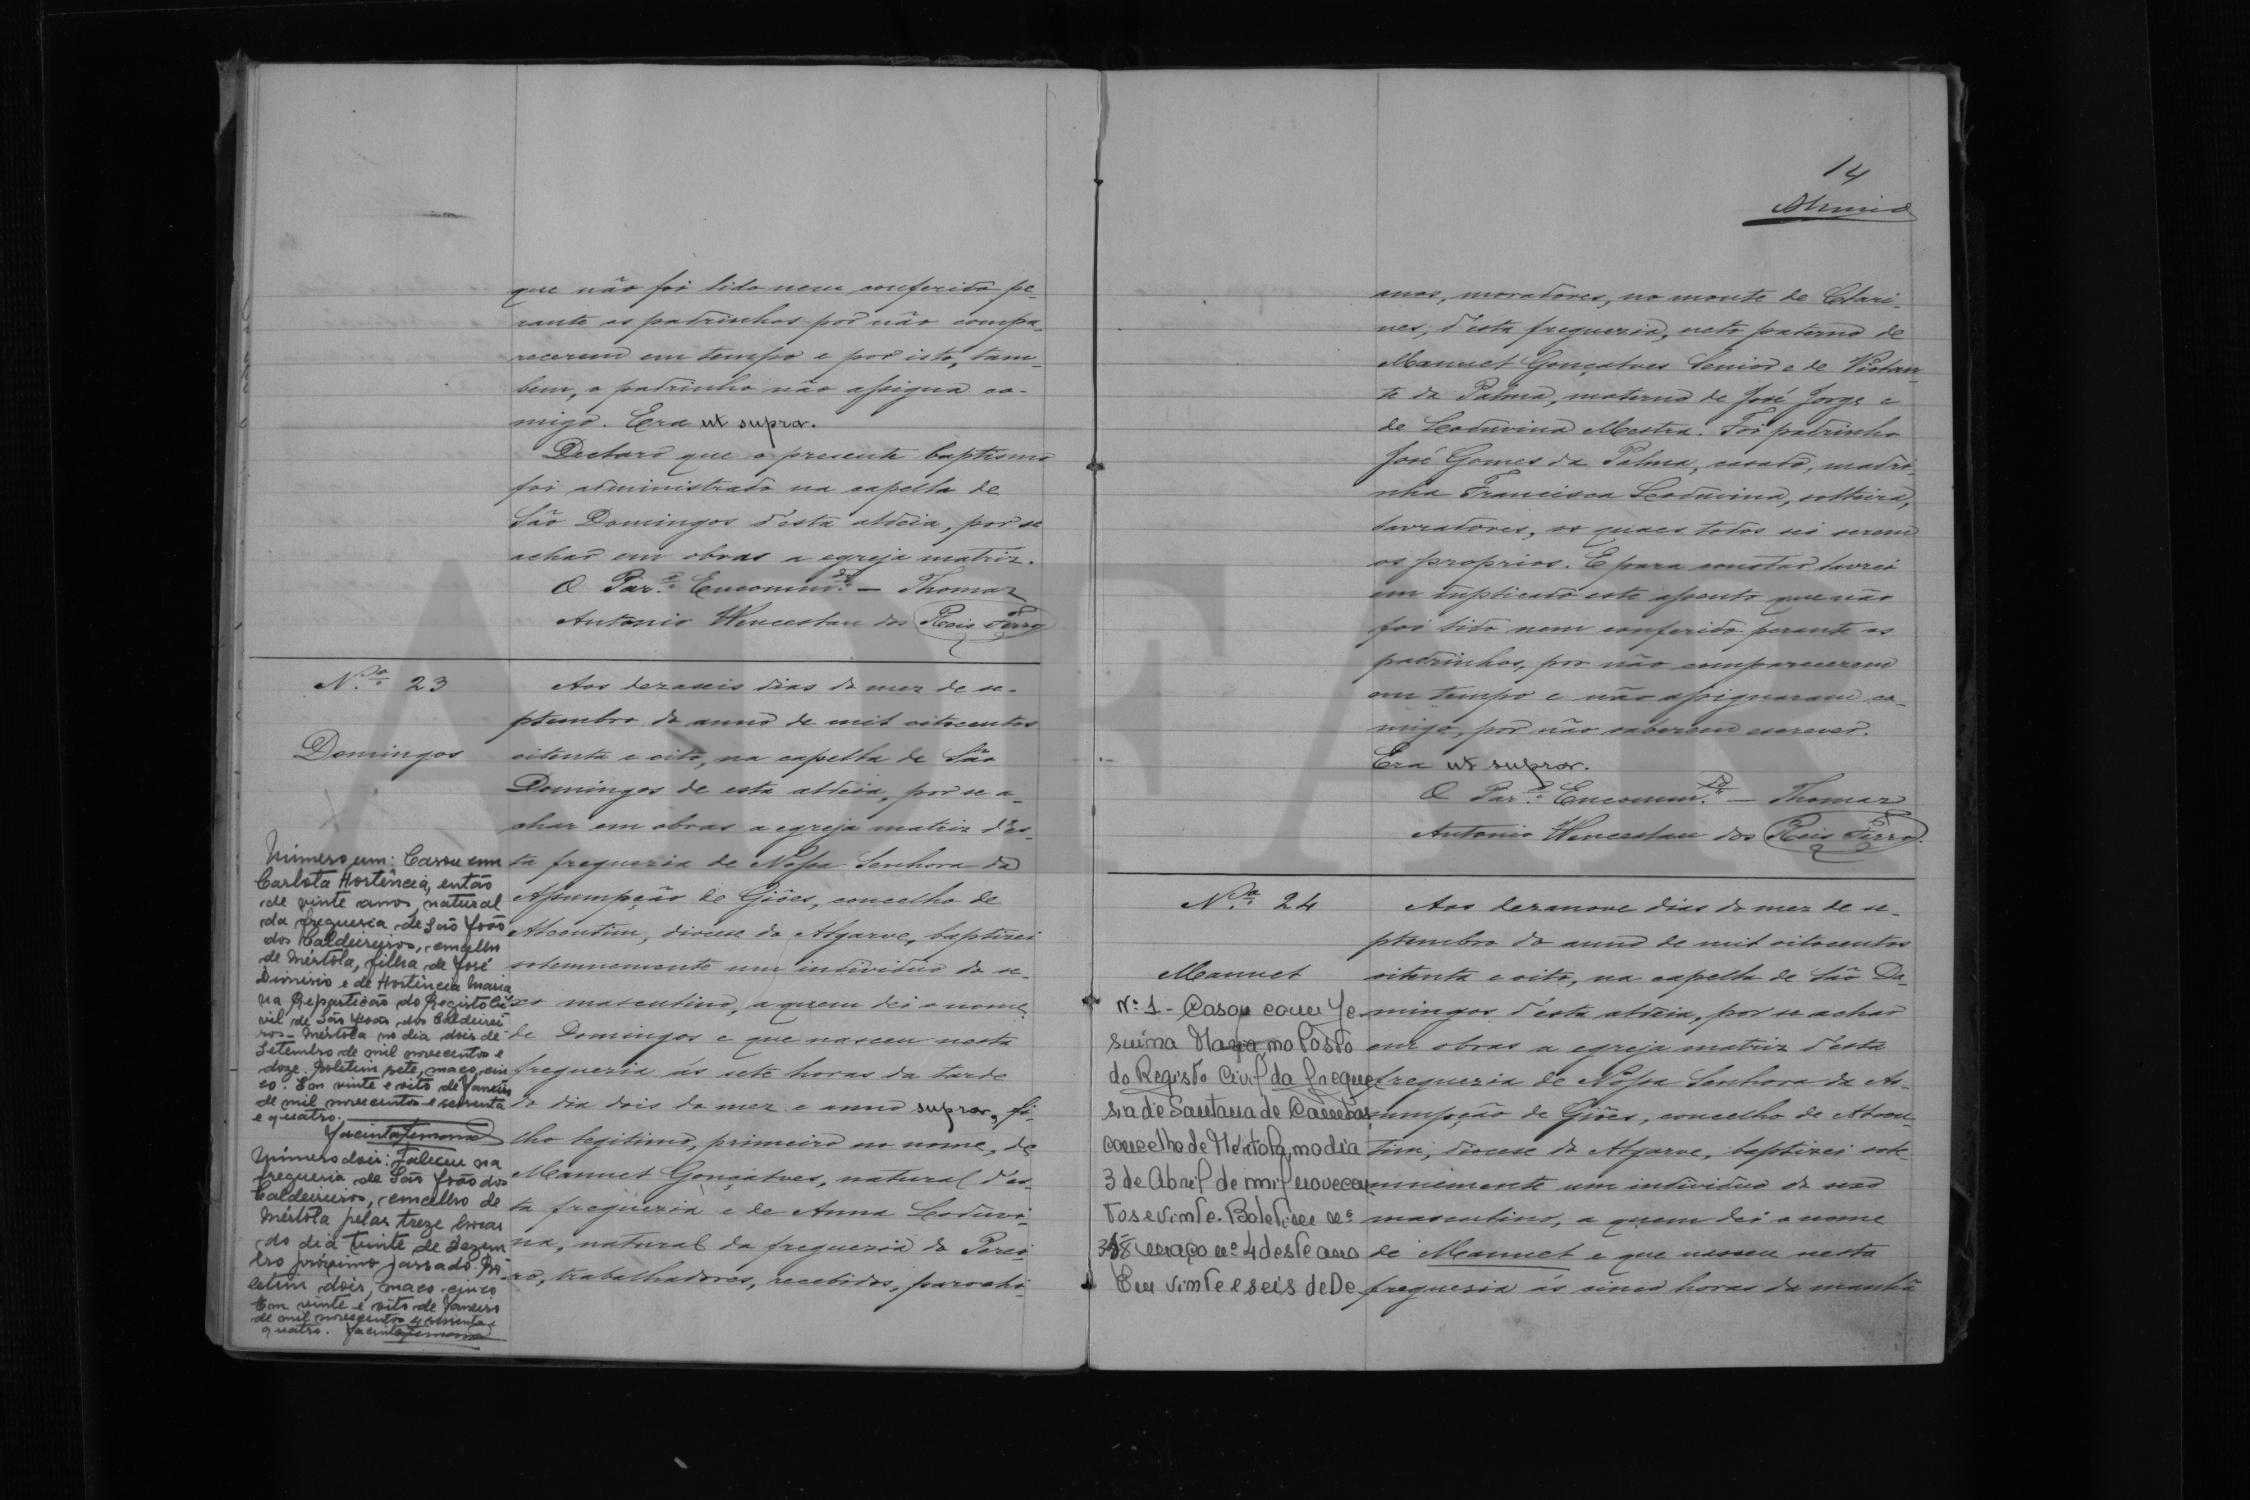 que não foi lido nem conferido pe-
rante os padrinhos por não compa-
recerem em tempo e por isto, tam-
bem, o padrinho não assigna co-
migo. Era ut supra.
Declaro que o presente baptismo
foi administrado na capella de
São Domingos d'esta aldeia, por se
achar em obras a egreja matriz.
O Par.º Encommd.º — Thomaz
Antonio Wenceslau dos Reis Ferro
N.º 23
Domingos
Aos dezaseis dias do mez de se-
ptembro do anno de mil oitocentos
oitenta e oito, na capella de São
Domingos de esta aldeia, por se a-
char em obras a egreja matriz d'es-
ta freguezia de Nossa Senhora da
Assumpção de Giões, concelho de
Alcoutim, diocese do Algarve, baptizei
solemnemente um individuo do se-
xo masculino, a quem dei o nome
de Domingos e que nasceu nesta
freguezia ás sete horas da tarde
do dia dois do mez e anno supra, fi-
lho legitimo, primeiro no nome, de
Manuel Gonçalves, natural d'es-
ta freguezia e de Anna Loduvi-
na, natural da freguezia do Perei-
ro, trabalhadores, recebidos, parochi-
Número um: Casou com
Carlota Hortência, então
de vinte anos, natural
da freguesia de São João
dos Caldeireiros, concelho
de Mértola, filha de José
Dionisio e de Hortência Maria
na Repartição do Registo Ci-
vil de São João dos Caldeirei-
ros - Mértola no dia dois de
Setembro de mil novecentos e
doze. Boletim sete, maço cin-
co. Em vinte e oito de Janeiro
de mil novecentos e sessenta
e quatro.
Número dois: Faleceu na
freguesia de São João dos
Caldeireiros, concelho de
Mértola pelas treze horas
do dia trinte de Dezem-
bro próximo passado. Bo-
letim dois, maço cinco
Em vinte e oito de Janeiro
de mil novecentos e sessenta e
quatro.
14
anos, moradores, no monte de Clari-
nes, d'esta freguezia, neto paterno de
Manuel Gonçalves Senior e de
da Palma, materno de José Jorge e
de Loduvina Mestra. Foi padrinho
José Gomes da Palma, casado, madri-
nha Francisca Loduvina, solteira,
lavradores, os quaes todos sei serem
os proprios. E para constar lavrei
em duplicado este assento que não
foi lido nem conferido perante os
padrinhos, por não comparecerem
em tempo e não assignaram co-
migo, por não saberem escrever.
Era ut supra.
O Par.º Encommd.º — Thomaz
Antonio Wenceslau dos Reis Ferro.
N.º 24
Manuel
Aos dezanove dias do mez de se-
ptembro do anno de mil oitocentos
oitenta e oito, na capella de São Do-
mingos d'esta aldeia, por se achar
em obras a egreja matriz d'esta
freguezia de Nossa Senhora da As-
sumpção de Giões, concelho de Alcou-
tim, diocese do Algarve, baptizei sole-
mnemente um individuo do sexo
masculino, a quem dei o nome
de Manuel e que nasceu nesta
freguezia ás cinco horas da manhã
Nº 1 - Casou com Je-
suina Maria no Posto
do Registo Civil da fregue-
sia de Santana de Cambas,
concelho de Mértola, no dia
3 de Abril de mil novecen-
tos e vinte. Boletim nº
maço nº 4 deste ano
Em vinte e seis de De
ADFAR